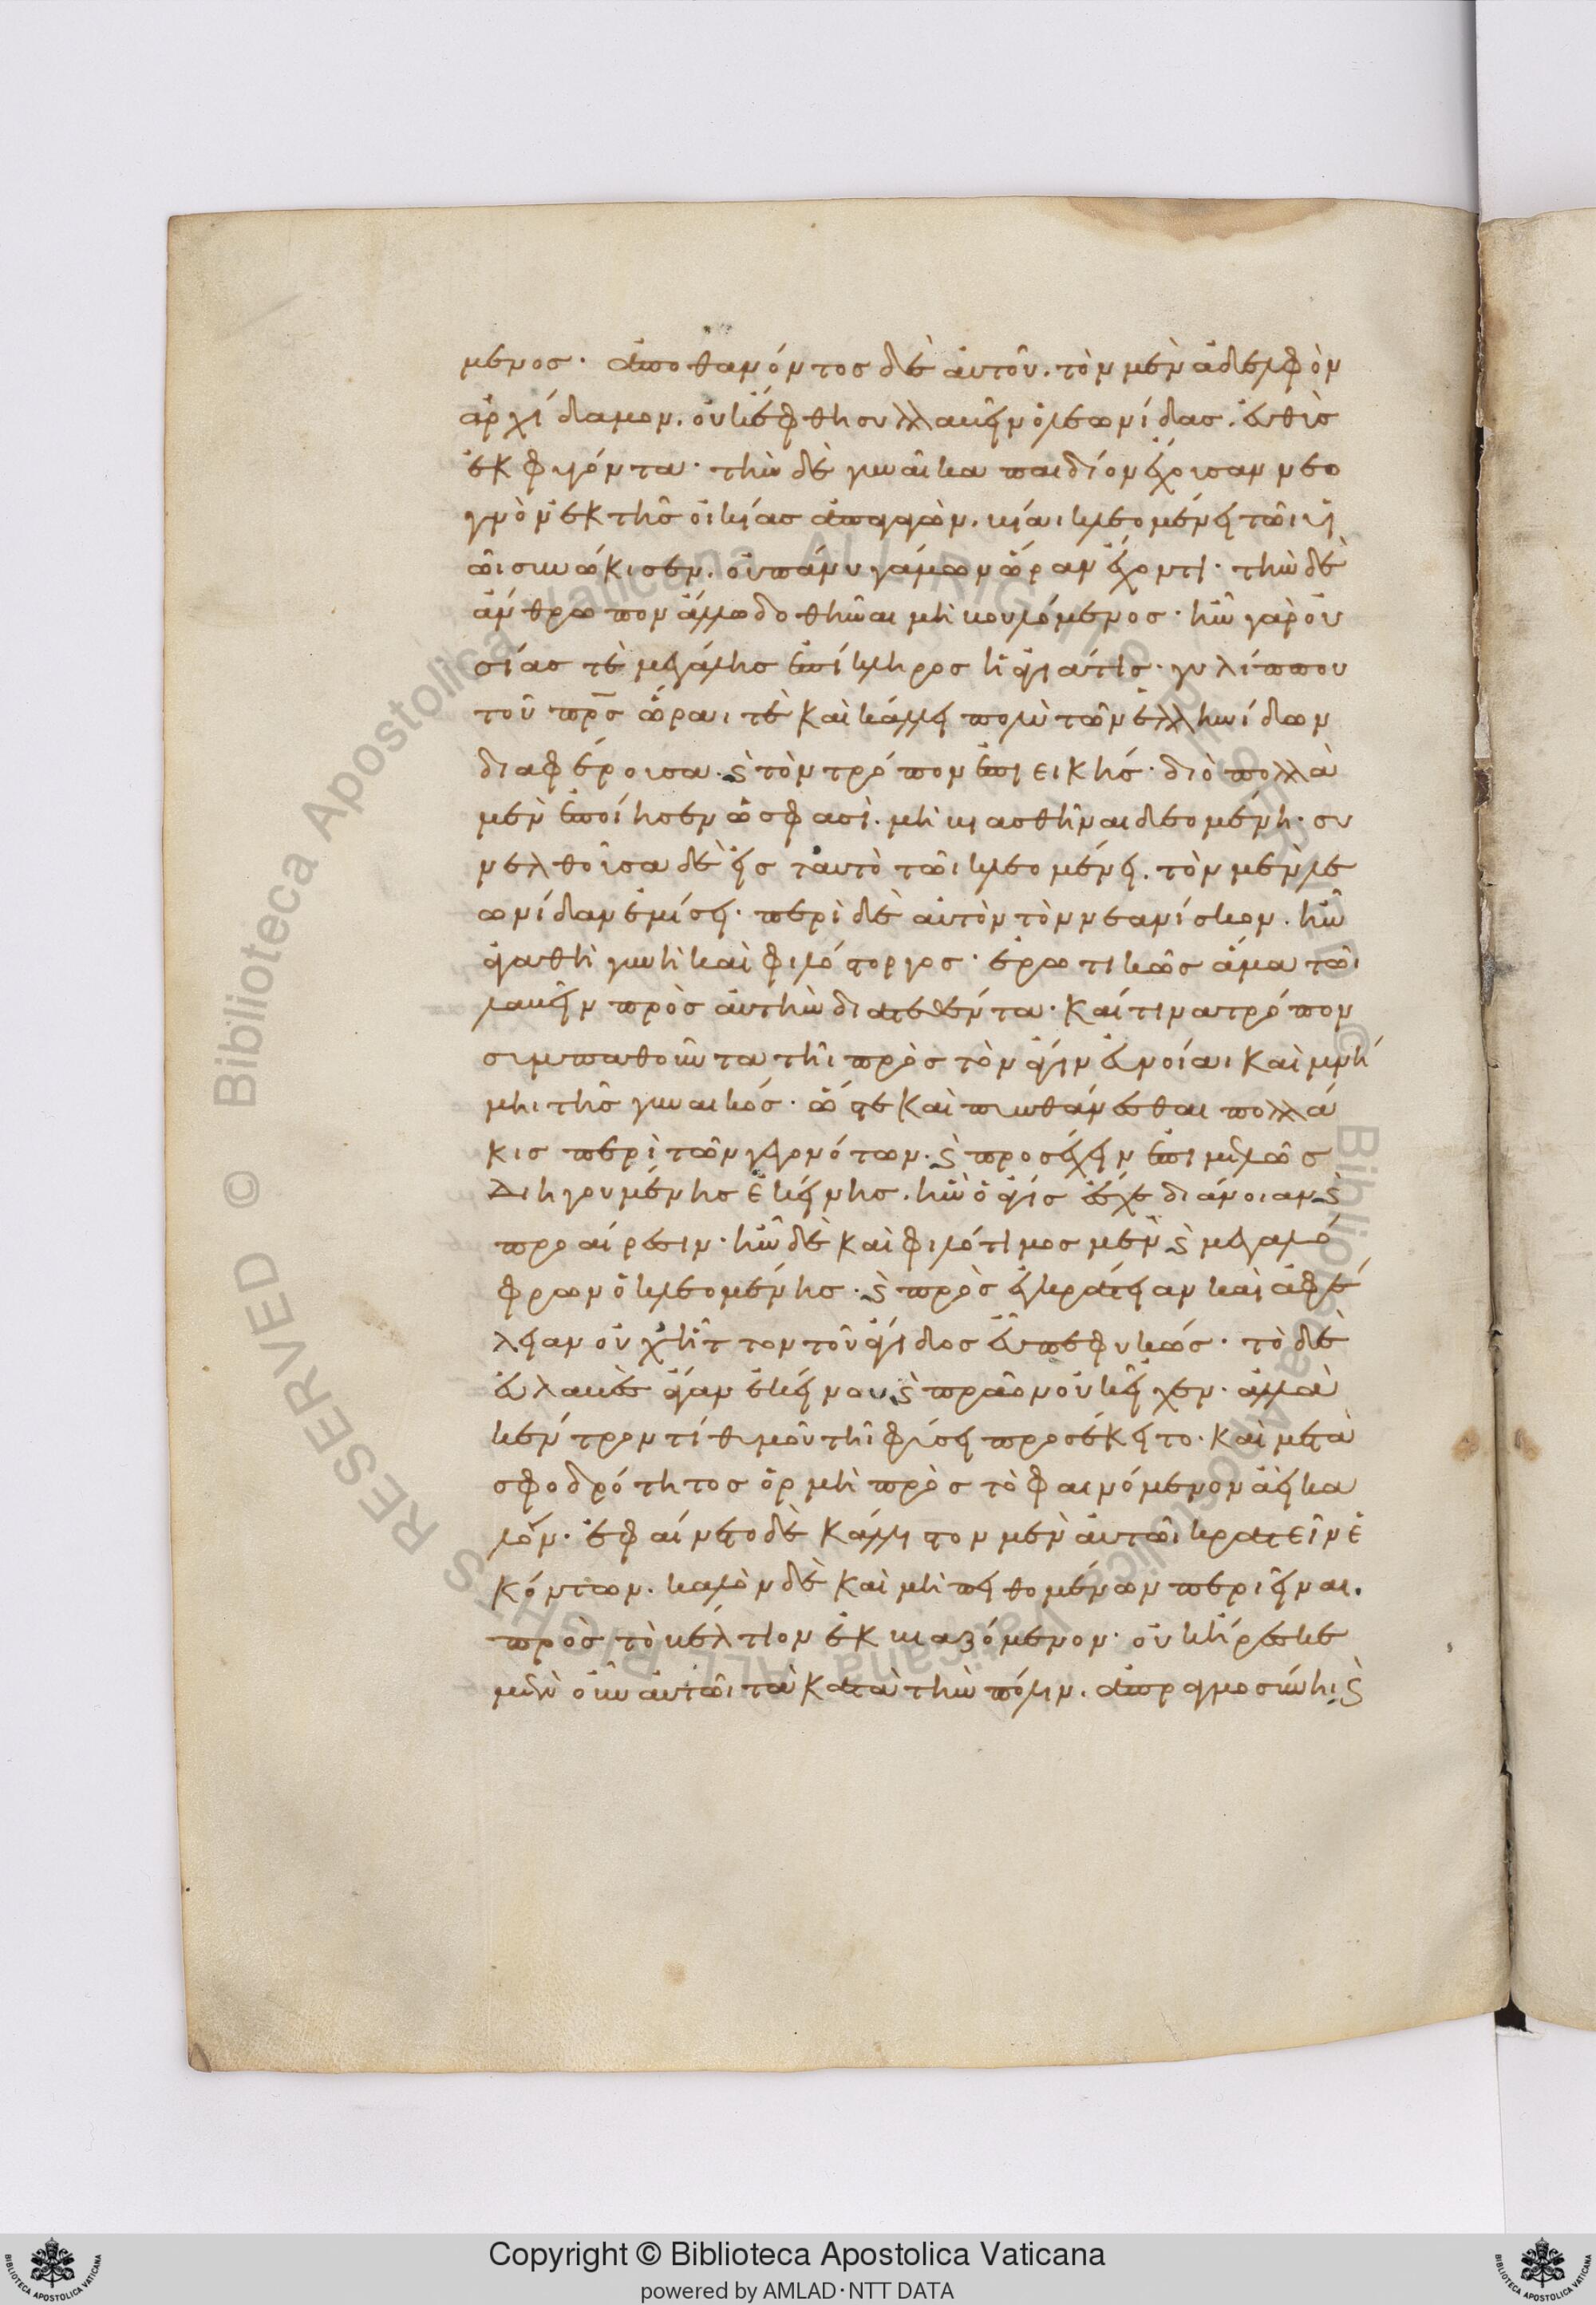 μενος· ἀποθανόντος δὲ αὐτοῦ. τὸν μὲν ἀδελφὸν
ἀρχίδαμον. οὐκ ἔφθη συλλαβεῖν ὁ λεωνίδας. εὐθὺς
ἐκφυγόντα· τὴν δὲ γυναῖκα παιδίον ἔχουσαν νεο
γνὸν ἐκ τῆς οἰκίας ἀπαγαγὼν. βίαι κλεομένει τῶι υἱ
ῶι συνώκισεν. οὐ πάνυ γάμων ὥραν ἔχοντι· τὴν δὲ
ἄνθρωπον ἄλλω δοθῆναι μὴ βουλόμενος· ἦν γὰρ οὐ
σίας τὲ μεγάλης ἐπίκληρος ἡ ἀγιάτις· γυλίππου
τοῦ πρ̅ς ὥραι τὲ καὶ κάλλει πολὺ τῶν ἑλληνίδων
διαφέρουσα. ϛ̀ τὸν τρόπον ἐπιεικής· διὸ πολλὰ
μὲν ἐποίησεν ὥς φασὶ. μὴ βιασθῆναι δεομένη· συ
νελθοῦσα δὲ εἰς ταυτὸ τῶι κλεομένει. τὸν μὲν λε
ωνίδαν ἐμίσει· περὶ δὲ αὐτὸν τὸν νεανίσκον. ἦν
ἀγαθὴ γυνὴ καὶ φιλόστοργος· ἐρωτικῶς ἅμα τῶι
λαβεῖν πρὸς αὐτὴν διατεθέντα· καί τινα τρόπον
συμπαθοῦντα τῆι πρὸς τὸν ἆγιν εὐνοίαι καὶ μνή
μηι τῆς γυναικός· ὥστε καὶ πυνθάνεσθαι πολλά
κις περὶ τῶν γεγονότων. ϛ̀ προσέχειν ἐπιμελῶς
διηγουμένης ἐκείνης. ἣν ὁ ἆγις ἔσχε διάνοιαν ϛ̀
προαίρεσιν· ἦν δὲ καὶ φιλότιμος μὲν ϛ̀ μεγαλό
φρων ὁ κλεομένης· ϛ̀ πρὸς ἐγκράτειαν καὶ ἀφέ
λειαν οὐχ ἧττον τοῦ ἄγιδος εὖ πεφυκώς· τὸ δὲ
εὐλαβὲς ἄγαν ἐκείνου ϛ̀ πρᾶον οὐκ εἶχεν· ἀλλὰ
κέντρον τί θυμοῦ τῆι φύσει προσέκειτο· καὶ μετὰ
σφοδρότητος ὁρμὴ πρὸς τὸ φαινόμενον ἀεὶ κα
λόν· ἐφαίνετο δὲ κάλλιστον μὲν αὐτῶι κρατεῖν ἑ
κόντων. καλὸν δὲ καὶ μὴ πειθομένων περιεῖναι.
πρὸς τὸ βέλτιον ἐκβιαζόμενον· οὐκ ἤρεσκε
μὲν οὖν αὐτῶι τὰ κατὰ τὴν πόλιν. ἀπραγμοσύνηι ϛ̀
Copyright © Biblioteca Apostolica Vaticana
powered by AMLAD·NTT DATA